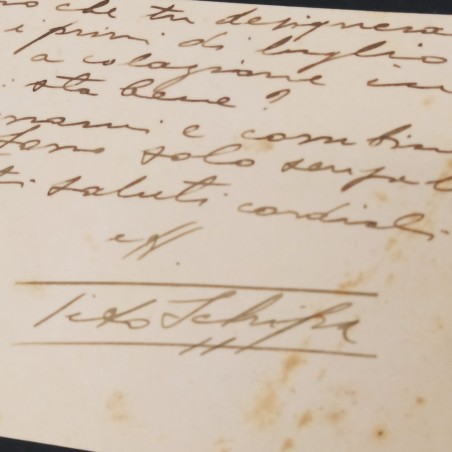 che tu designerai
i primi di luglio
a colazione in
sta bene?
e combin
solo senza
saluti cordiali
Tito Schipa